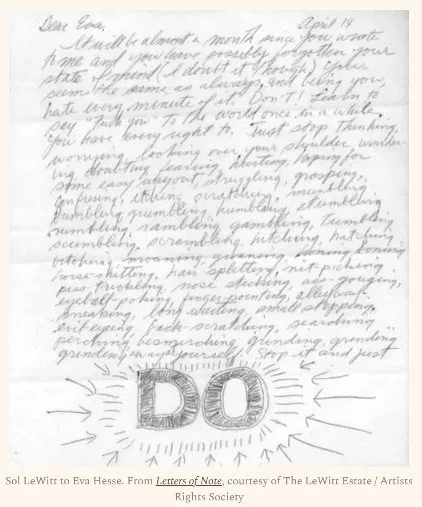 Dear Eva, April 14
It will be almost a month since you wrote
to me and you have possibly forgotten your
state of mind (I doubt it though). You
seem the same as always, and being you,
hate every minute of it. Don't! Learn to
say "Fuck You" to the world once in a while.
You have every right to. Just stop thinking,
worrying, looking over your shoulder, wonder-
ing, doubting, fearing, hurting, hoping for
some easy way out, struggling, grasping,
confusing, itching, scratching, mumbling,
bumbling, grumbling, humbling, stumbling,
numbling, rambling, gambling, tumbling,
scumbling, scrambling, hitching, hatching,
bitching, moaning, groaning, honing, boning,
horse-shitting, hair-splitting, nit-picking,
piss-trickling, nose sticking, ass-gouging,
eyeball-poking, finger-pointing, alleyway-
sneaking, long waiting, small stepping,
evil-eyeing, back-scratching, searching,
perching, besmirching, grinding, grinding
grinding away at yourself. Stop it and just
DO
Sol LeWitt to Eva Hesse. From Letters of Note, courtesy of The LeWitt Estate / Artists
Rights Society